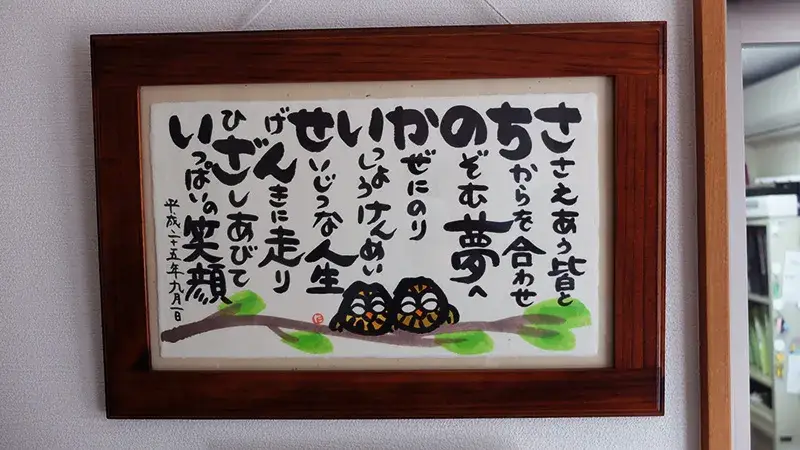 ささえあう皆と
ちからを合わせ
のぞむ夢へ
かぜにのり
いっしょうけんめい
せいじつな人生
げんきに走り
ひざしあびて
いっぱいの笑顔
平成二十五年九月一日